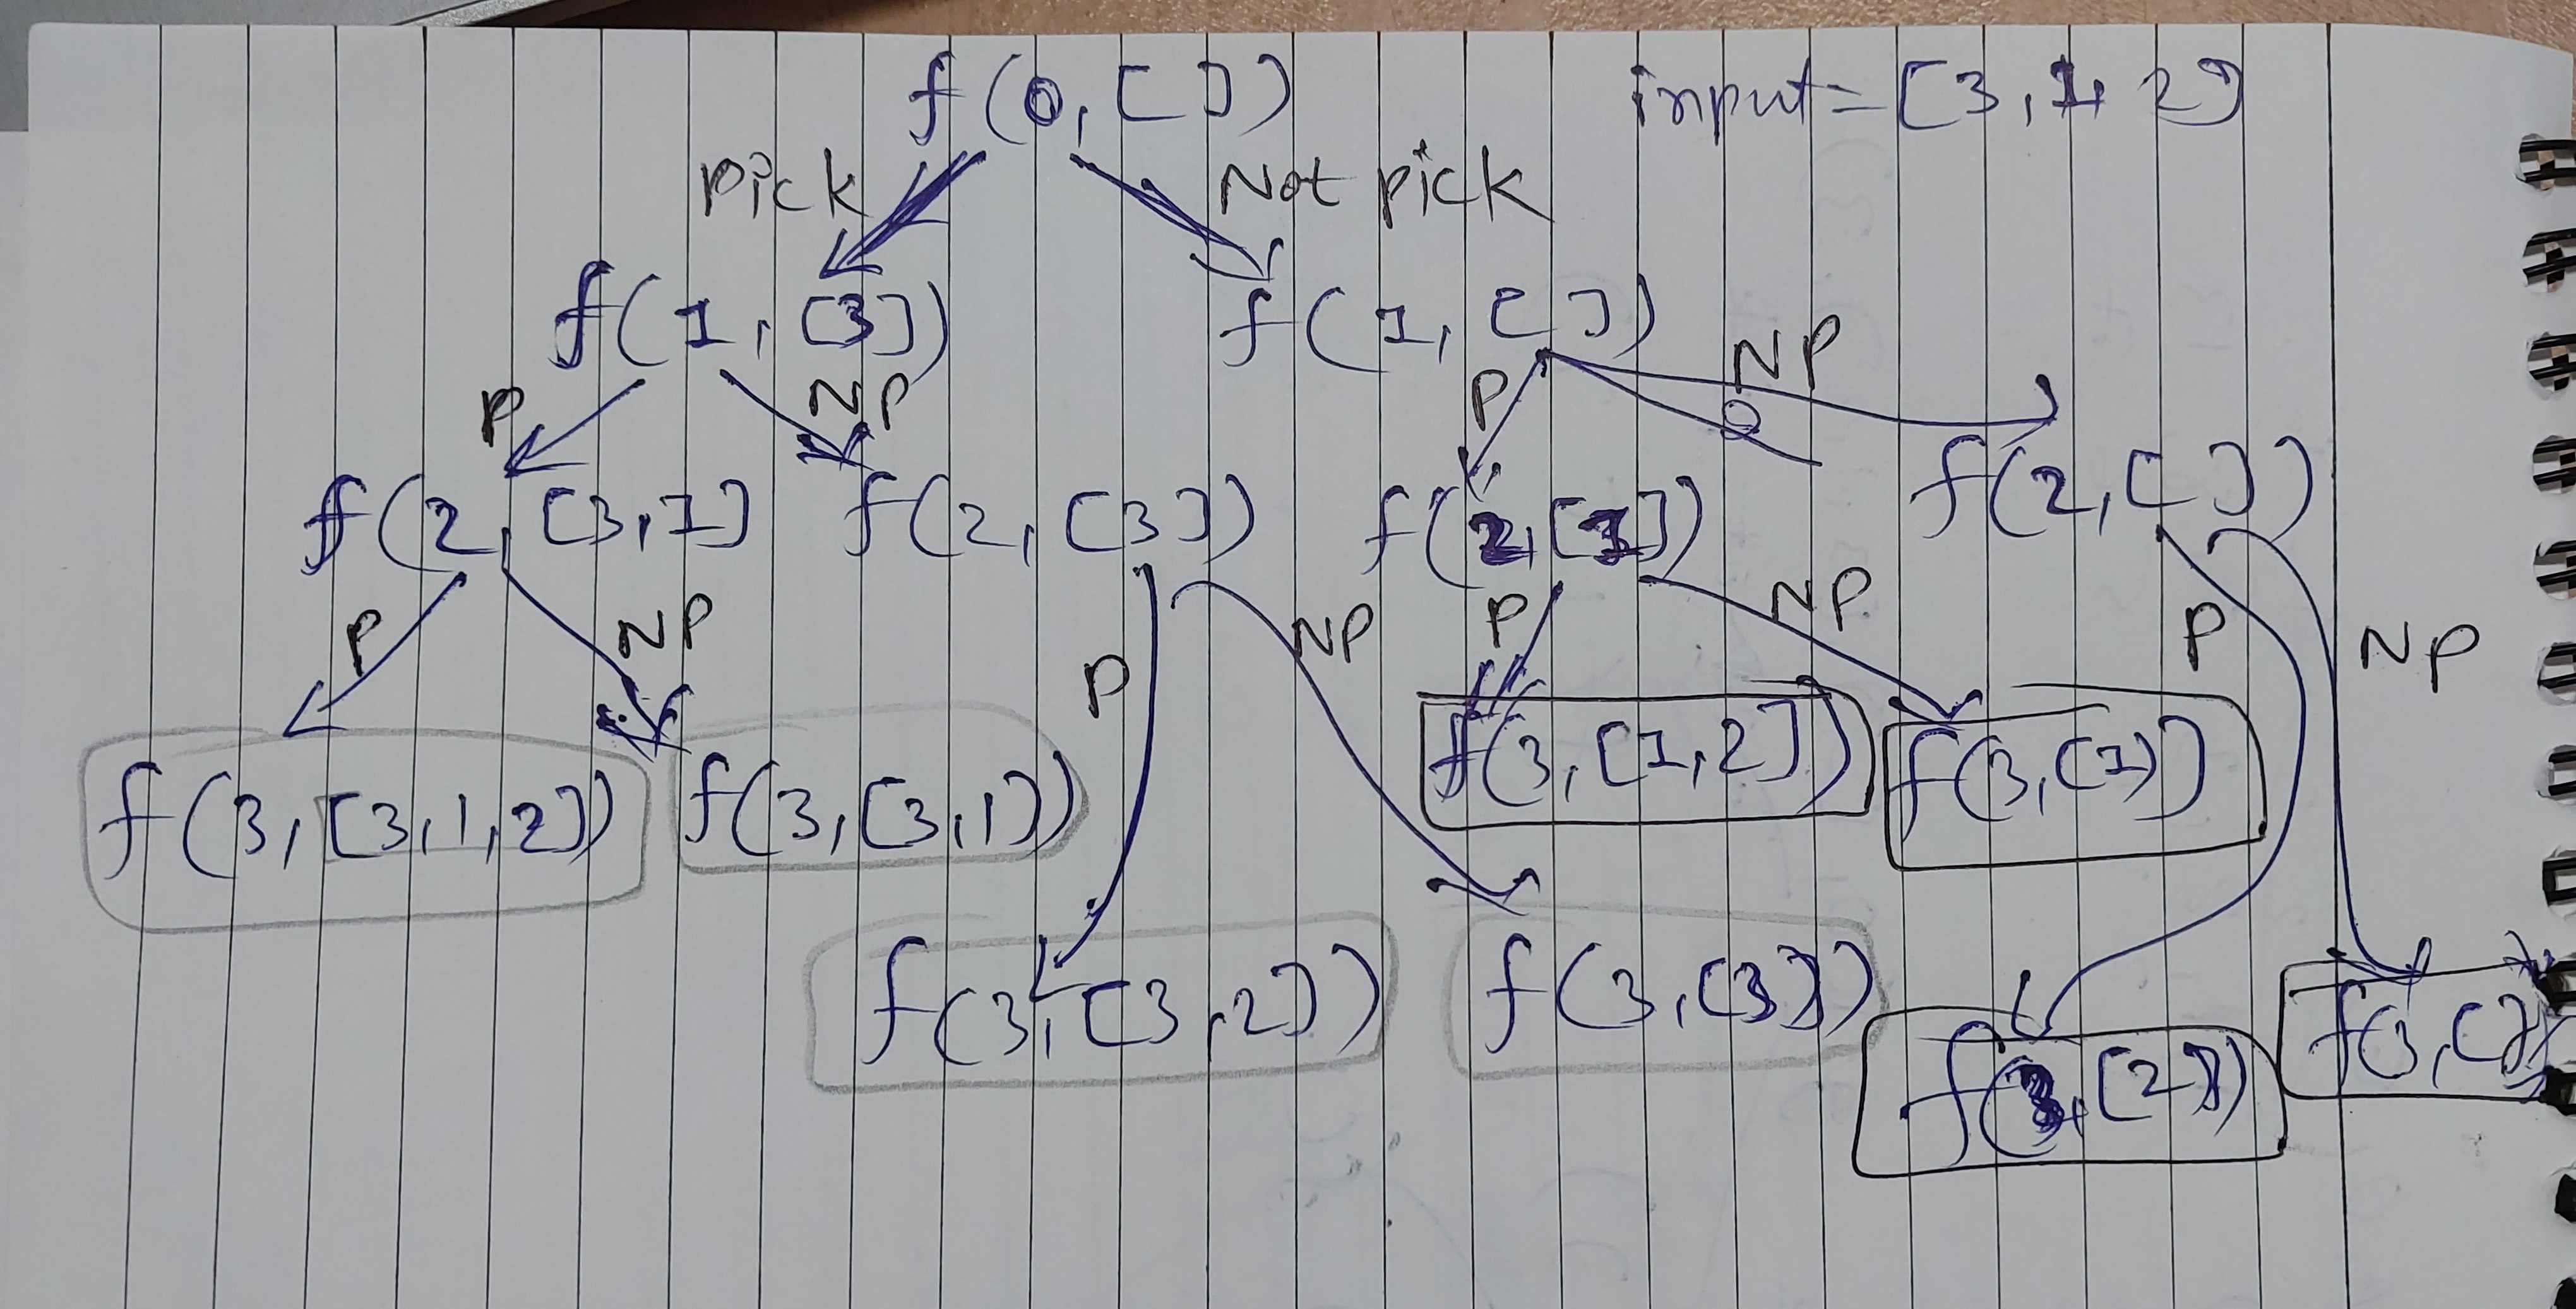 f(0, [ ]) input = [3, 1, 2]
Pick Not pick
f(1, [3]) f(1, [ ])
P NP P NP
f(2, [3,1] f(2, [3]) f(2, [1]) f(2, [ ])
P NP P NP P NP P NP
f(3, [3,1,2]) f(3, [3,1]) f(3, [1,2]) f(3, [1])
f(3, [3,2]) f(3, [3]) f(3, [2]) f(3, [ ])